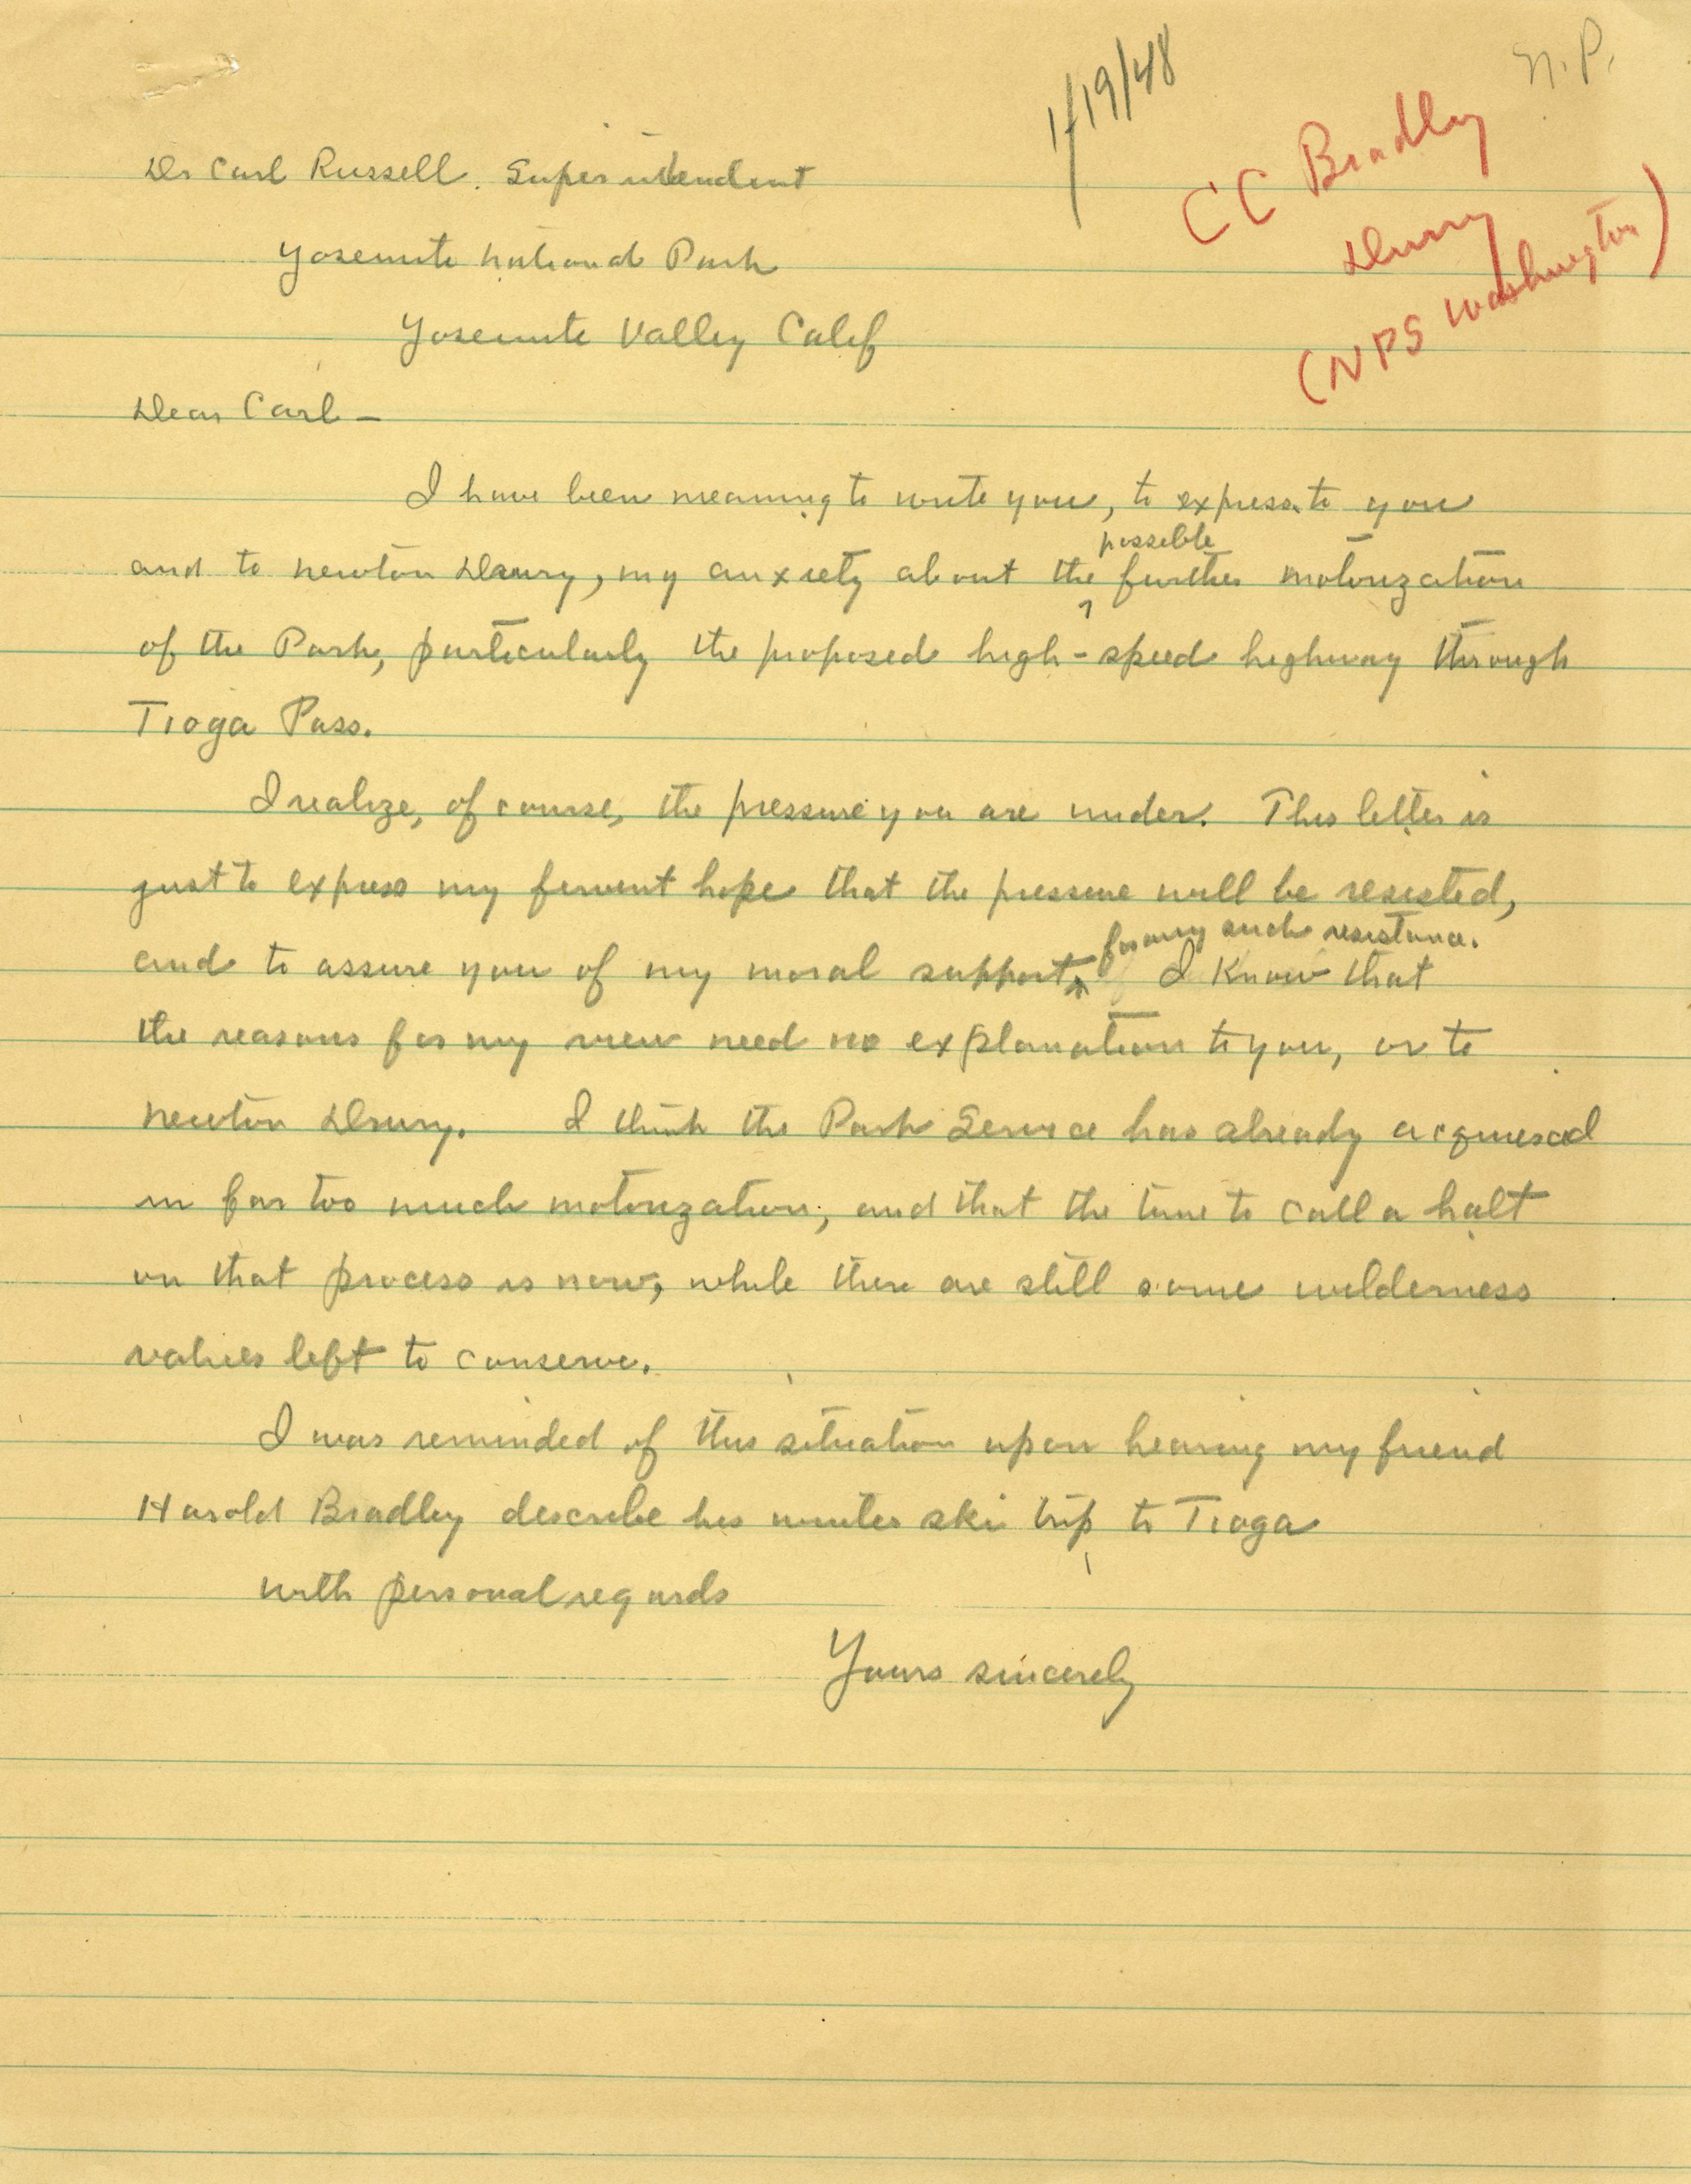 N.P.
1/19/48
CC Bradley
Drury
(NPS Washington)
Dr Carl Russell. Superintendent
Yosemite National Park
Yosemite Valley Calif
Dear Carl —
I have been meaning to write you, to express to you
possible
and to Newton Drury, my anxiety about the further motorization
of the Park, particularly the proposed high-speed highway through
Tioga Pass.
I realize, of course, the pressure you are under. This letter is
just to express my fervent hope that the pressure will be resisted,
for any such resistance.
and to assure you of my moral support I know that
the reasons for my view need no explanation to you, or to
Newton Drury. I think the Park Service has already acquiesced
in far too much motorization, and that the time to call a halt
on that process is now, while there are still some wilderness
values left to conserve.
I was reminded of this situation upon hearing my friend
Harold Bradley describe his winter ski trip to Tioga
with personal regards
Yours sincerely